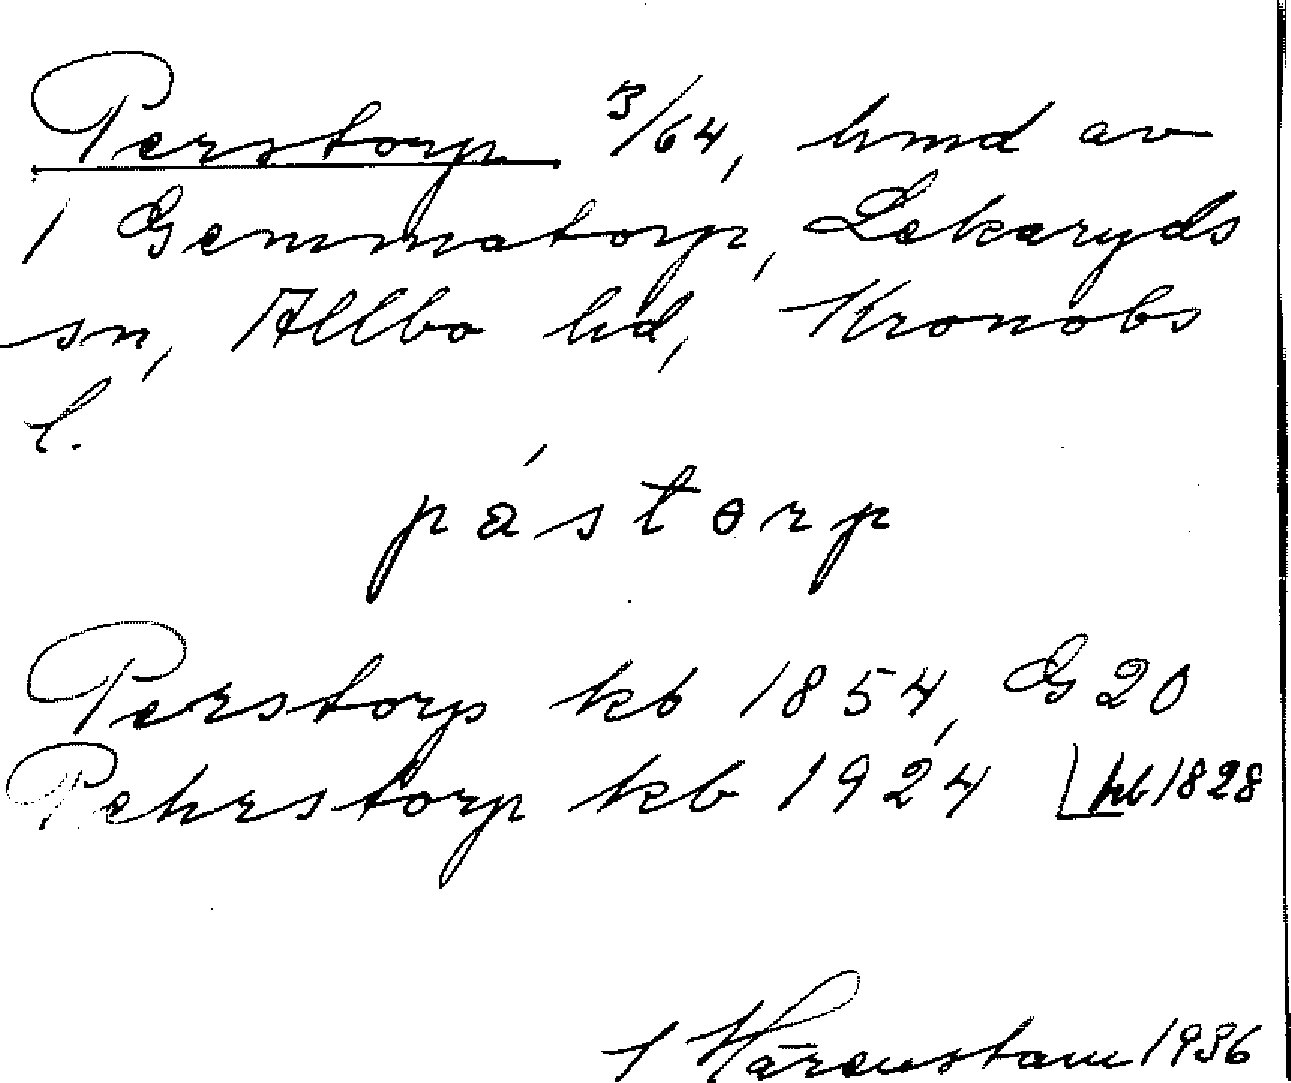 Perstorp 3/64, hmd av
1 Gemmatorp, Lekaryds
sn, Allbo hd, Kronobs
l.
pástorp
Perstorp kb 1854, G 20
Pehrstorp kb 1924 kb 1828
Härenstam 1936